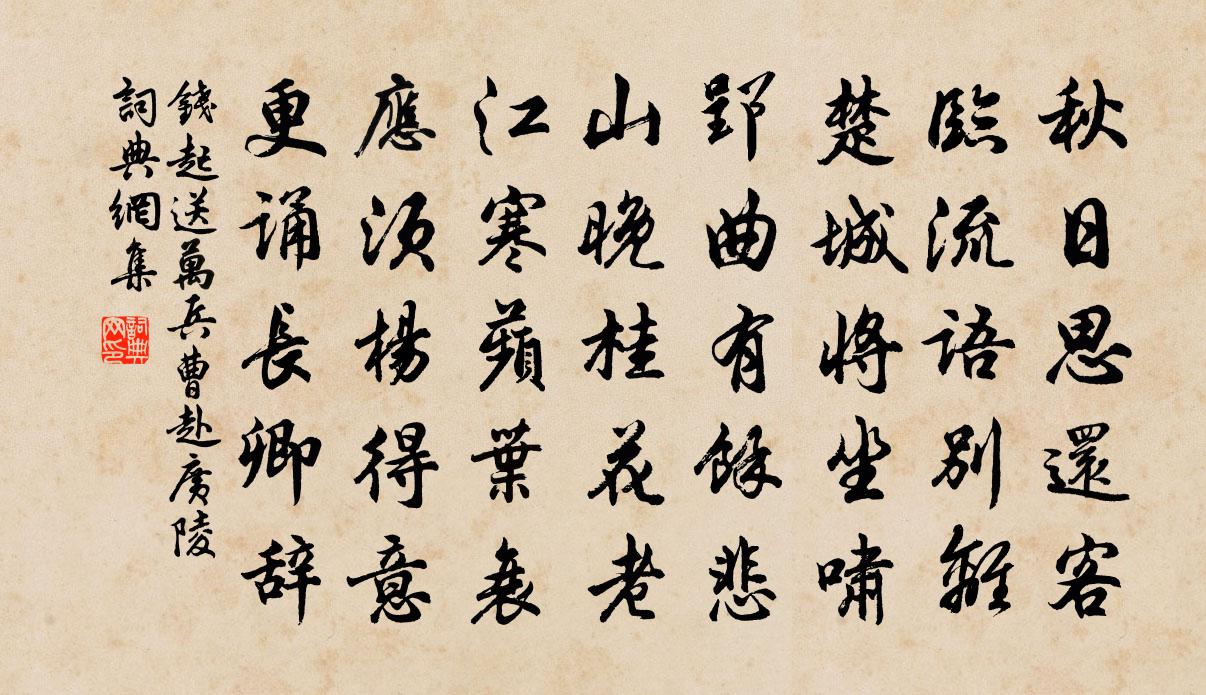 秋日思還客
臨流語別離
楚城將坐嘯
郢曲有餘悲
山晚桂花老
江寒蘋葉衰
應須楊得意
更誦長卿辞
錢起送萬兵曹赴廣陵
詞典網集
詞典网印